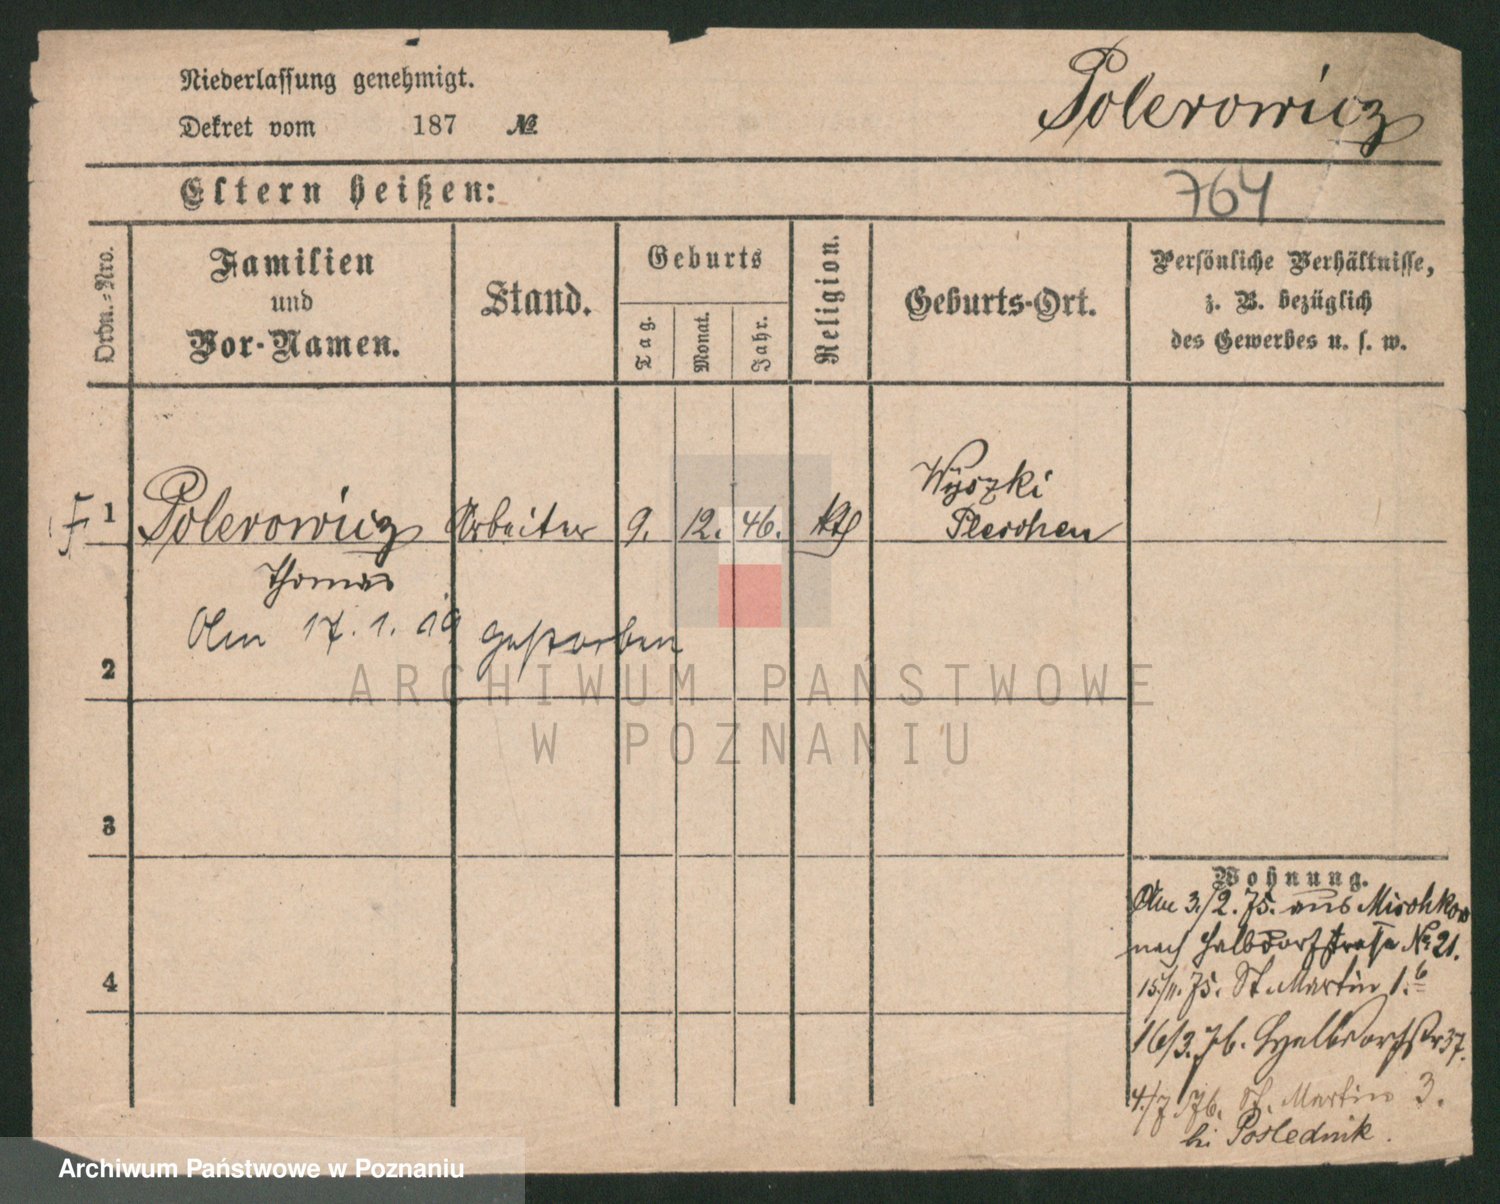 Niederlassung genehmigt.
Dekret vom 187 №
Polerowicz
Eltern heißen:
764
Ordn.=Nro.
Familien
und
Vor-Namen.
Stand.
Geburts
Tag.
Monat.
Jahr.
Religion.
Geburts-Ort.
Persönliche Verhältnisse,
z. B. bezüglich
des Gewerbes u. s. w.
F 1 Polerowicz Arbeiter 9. 12. 46. kth Wyszki
Pleschen
Thomas
Am 17. 1. 19 gestorben
2
ARCHIWUM PAŃSTWOWE
W POZNANIU
3
4
Wohnung.
Am 3./2. 75. aus Mieschkow
nach Halbdorfstrasse No 21.
15/11. 75. St. Martin 1.
16/3. 76. Halbdorfstr 37.
4./7 76. St. Martin 3.
bei Poslednik.
Archiwum Państwowe w Poznaniu